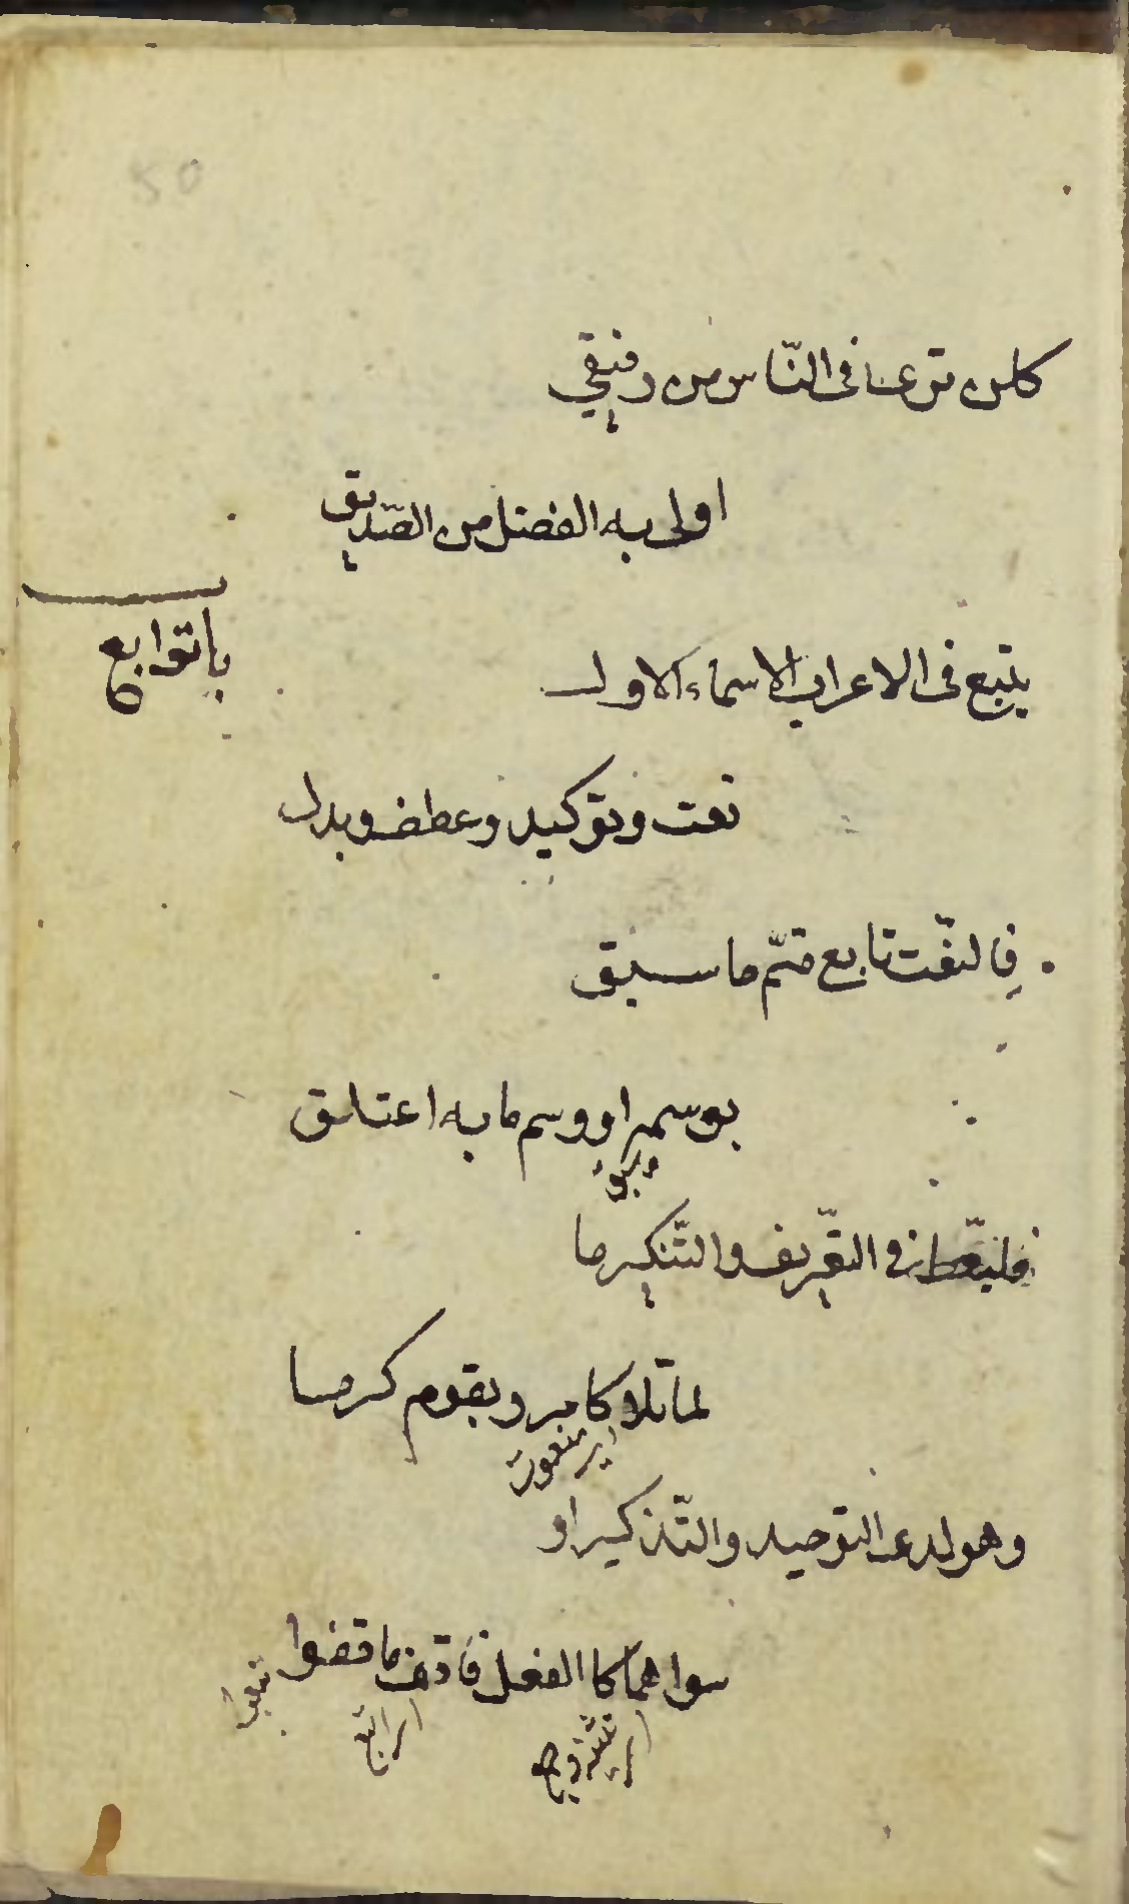 50
كلن ترى فى النّاس من رفيقي
اولى به الفضل من الصّديق
باتوابع
يتبع فى الاعراب الاسماء الاول
نعت وتوكيد وعطف وبدل
فالنّعت تابع متمّ ما سبق
بوسمه او وسم ما به اعتلق
فليعط فى التعّريف والتّنكير ما
لما تلا كامرر بقوم كرما
وهو لدى التوحيد والتّذكير او
سواهما كا الفعل فاقف ما قفوا
تبعوا